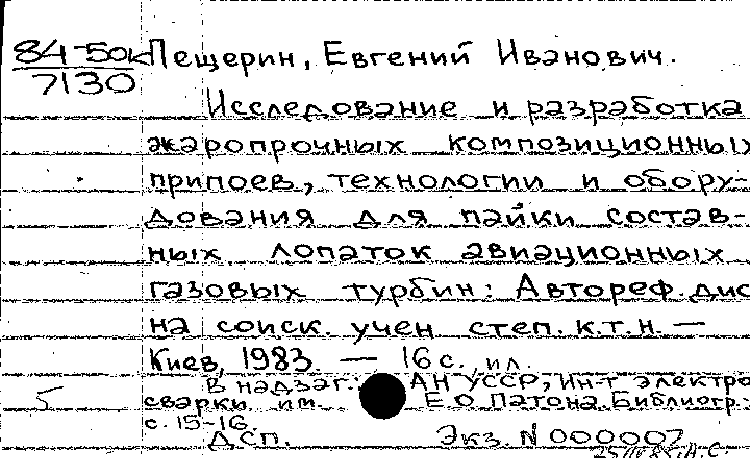 84-50к
7130
Пещерин, Евгений Иванович.
Исследование и разработка
жаропрочных композиционных
припоев, технологии и обору-
дования для пайки состав-
ных лопаток авиационных
газовых турбин: Автореф. дис
на соиск. учен. степ. к.т.н. —
Киев, 1983. — 16 с., ил.
В надзаг.: АН УССР, Ин-т электро
сварки им. Е О Патона. Библиогр.:
с. 15-16.
ДСП. Экз. N 000007
5